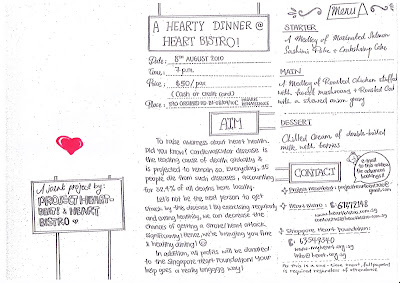 A HEARTY DINNER @
HEART BISTRO!
Date: 8TH AUGUST 2010
Time: 7 p.m.
Price: $50/pax
(Cash or credit card)
Place:
AIM
To raise awareness about heart health.
Did you know? Cardiovascular disease is
the leading cause of death globally &
is projected to remain so. Everyday, 15
people die from such diseases, accounting
for 32.9% of all deaths here locally.
Let's not be the next person to get
struck by this disease! By exercising regularly
and eating healthily, we can decrease the
chances of getting a stroke/heart attack
significantly! Hence, we're bringing you fine
& healthy dining! ☺
In addition, all profits will be donated
to the Singapore Heart Foundation! Your
help goes a really longggg way!
A joint project by:
PROJECT HEART-
BEAT & HEART
BISTRO ♥
Menu
STARTER
A Medley of Marinated Salmon
Sashimi Poke & Crab
MAIN
A Medley of Roasted Chicken stuffed
with forest mushrooms & Roasted Cod
with a stewed miso gravy
DESSERT
Chilled Cream of double-boiled
milk with berries
CONTACT
Project Heartbeat:
Heart Bistro:
Singapore Heart Foundation:
63549340
www.myheart.org.sg
info@heart.org.sg
This is a event, fullpayment
is required regardless of attendance